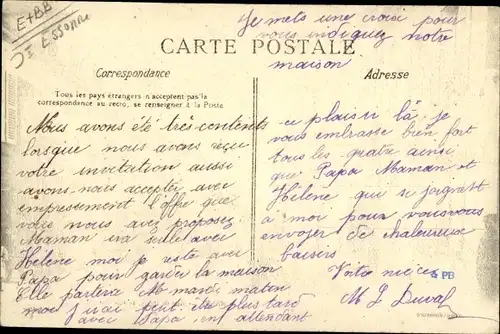 E+BB
DI ESSONNE
Je mets une croix pour
vous indiquez notre
maison
CARTE POSTALE
Correspondance
Adresse
Tous les pays étrangers n'acceptent pas la
correspondance au recto, se renseigner à la Poste
Nous avons été très contents
lorsque nous avons reçu
votre invitation aussi
avons-nous acceptée avec
empressement l'offre que
vous nous avez proposez
Maman ira seule avec
Hélène moi je reste avec
Papa pour garder la maison
Elle partira Mardi matin
moi j'irai peut être plus tard
avec Papa en attendant
ce plaisir là je
vous embrasse bien fort
tous les quatre ainsi
que Papa Maman et
Hélène qui se joignent
a moi pour vous
envoyer de chaleureux
baisers
Votre nièce
PB
M L Duval